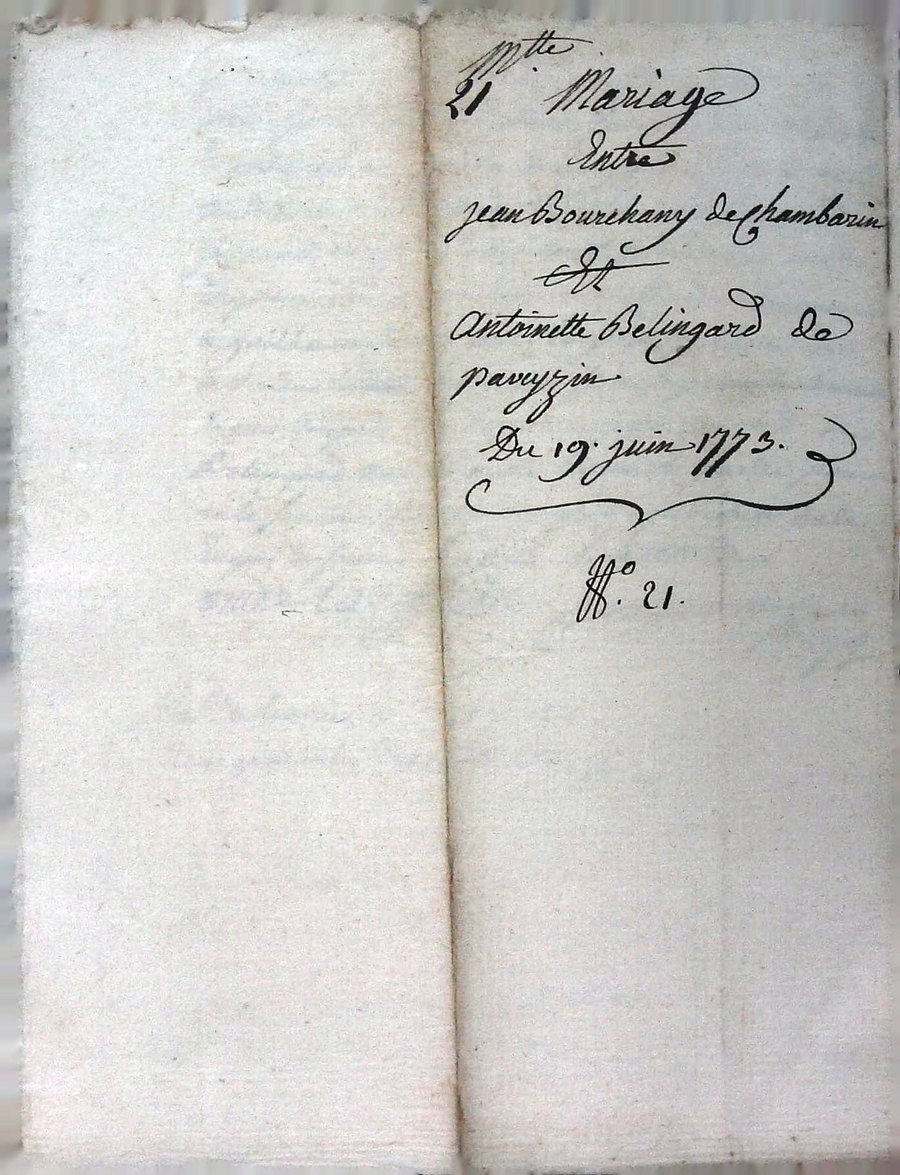 Mtte
21 Mariage
Entre
jean Bourchany de Chambarin
Et
Antoinette Belingard de
paveyzin
Du 19. juin 1773.
No. 21.